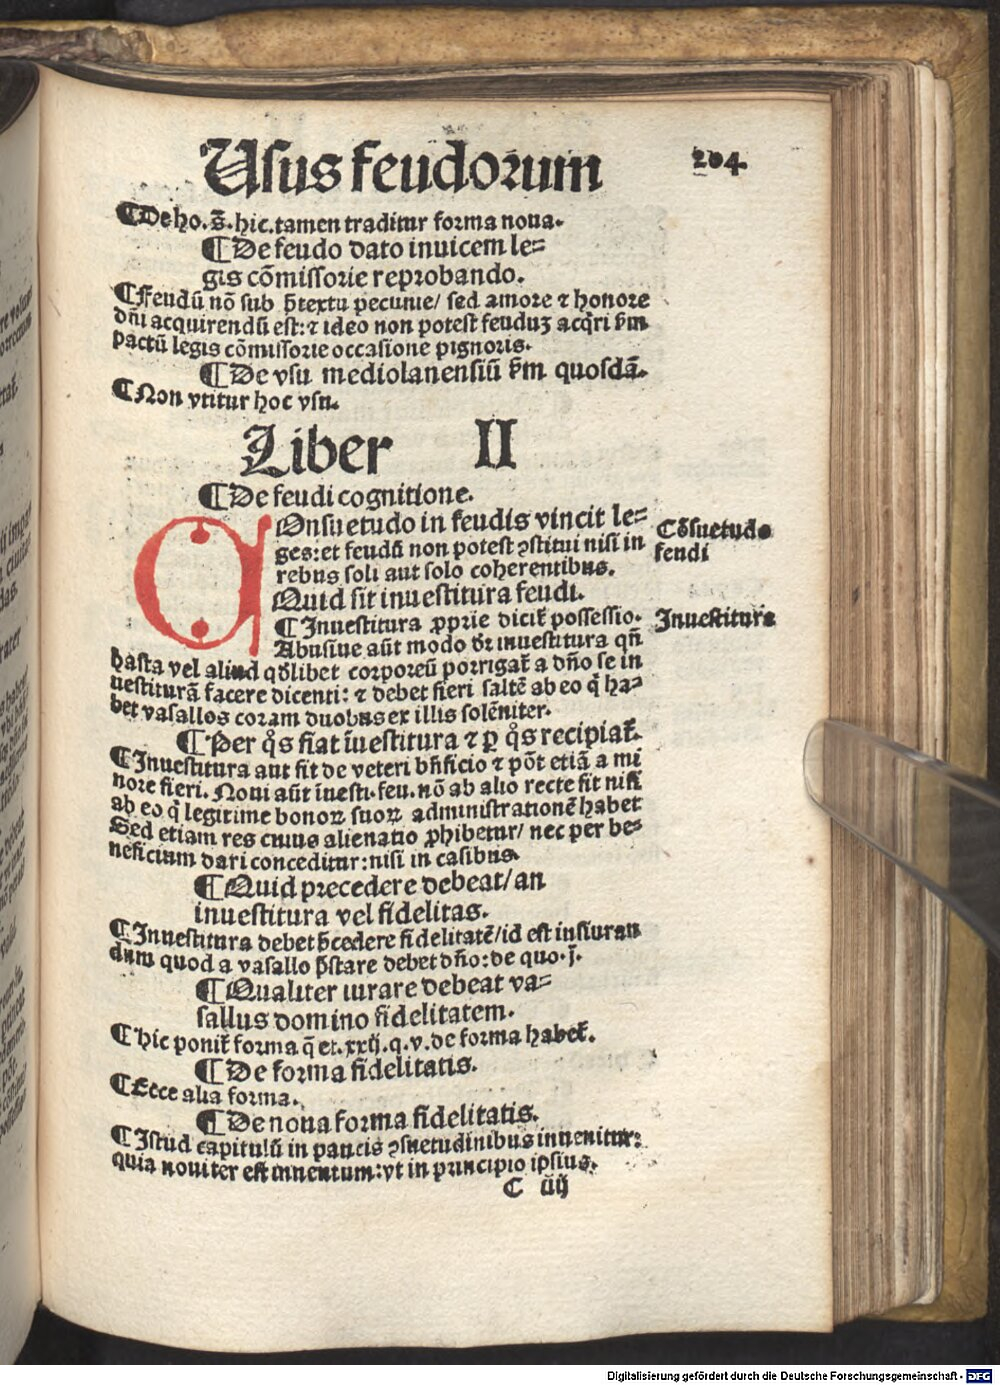 Usus feudorum 204
¶ De ho. g̅. hic. tamen traditur forma noua.
¶ De feudo dato inuicem le⸗
gis cõmissorie reprobando.
¶ Feudũ nõ sub p̃textu pecunie/ sed amore ⁊ honore
dñi acquirendũ est: ⁊ ideo non potest feuduꝫ acq̃ri ẞm
pactũ legis cõmissorie occasione pignoris.
¶ De vsu mediolanensiũ ẞm quosdã.
¶ Non vtitur hoc vsu.
Liber II
¶ De feudi cognitione.
COnsuetudo in feudis vincit le⸗
ges: et feudũ non potest ꝯstitui nisi in
rebus soli aut solo coherentibus.
Cõsuetudo
feudi
Quid sit inuestitura feudi.
¶ Inuestitura ꝓprie dicit̃ possessio.
Inuestitura
Abusiue aũt modo dr̃ inuestitura qñ
hasta vel aliud qd̃libet corporeũ porrigat̃ a dño se in
uestiturã facere dicenti: ⁊ debet fieri saltẽ ab eo q̃ ha⸗
bet vasallos coram duobus ex illis solẽniter.
¶ Per q̃s fiat ĩuestitura ⁊ p̲ q̃s recipiat̃.
¶ Inuestitura aut fit de veteri bñficio ⁊ põt etiã a mi
nore fieri. Noui aũt ĩuesti. feu. nõ ab alio recte fit nisi
ab eo q̃ legitime bonoꝝ suoꝝ administrationẽ habet
Sed etiam res cuius alienatio ꝓhibetur/ nec per be⸗
neficium dari conceditur: nisi in casibus.
¶ Quid precedere debeat/ an
inuestitura vel fidelitas.
¶ Inuestitura debet p̃cedere fidelitatẽ/ id est insiuran
dum quod a vasallo p̃stare debet dño: de quo. j.
¶ Qualiter iurare debeat va⸗
sallus domino fidelitatem.
¶ Hic ponit̃ forma q̃ et. xxij. q. v. de forma habet̃.
¶ De forma fidelitatis.
¶ Ecce alia forma.
¶ De noua forma fidelitatis.
¶ Istud capitulũ in paucis ꝯsuetudinibus inuenitur:
quia nouiter est inuentum: vt in principio ipsius.
C iiij
Digitalisierung gefördert durch die Deutsche Forschungsgemeinschaft - DFG